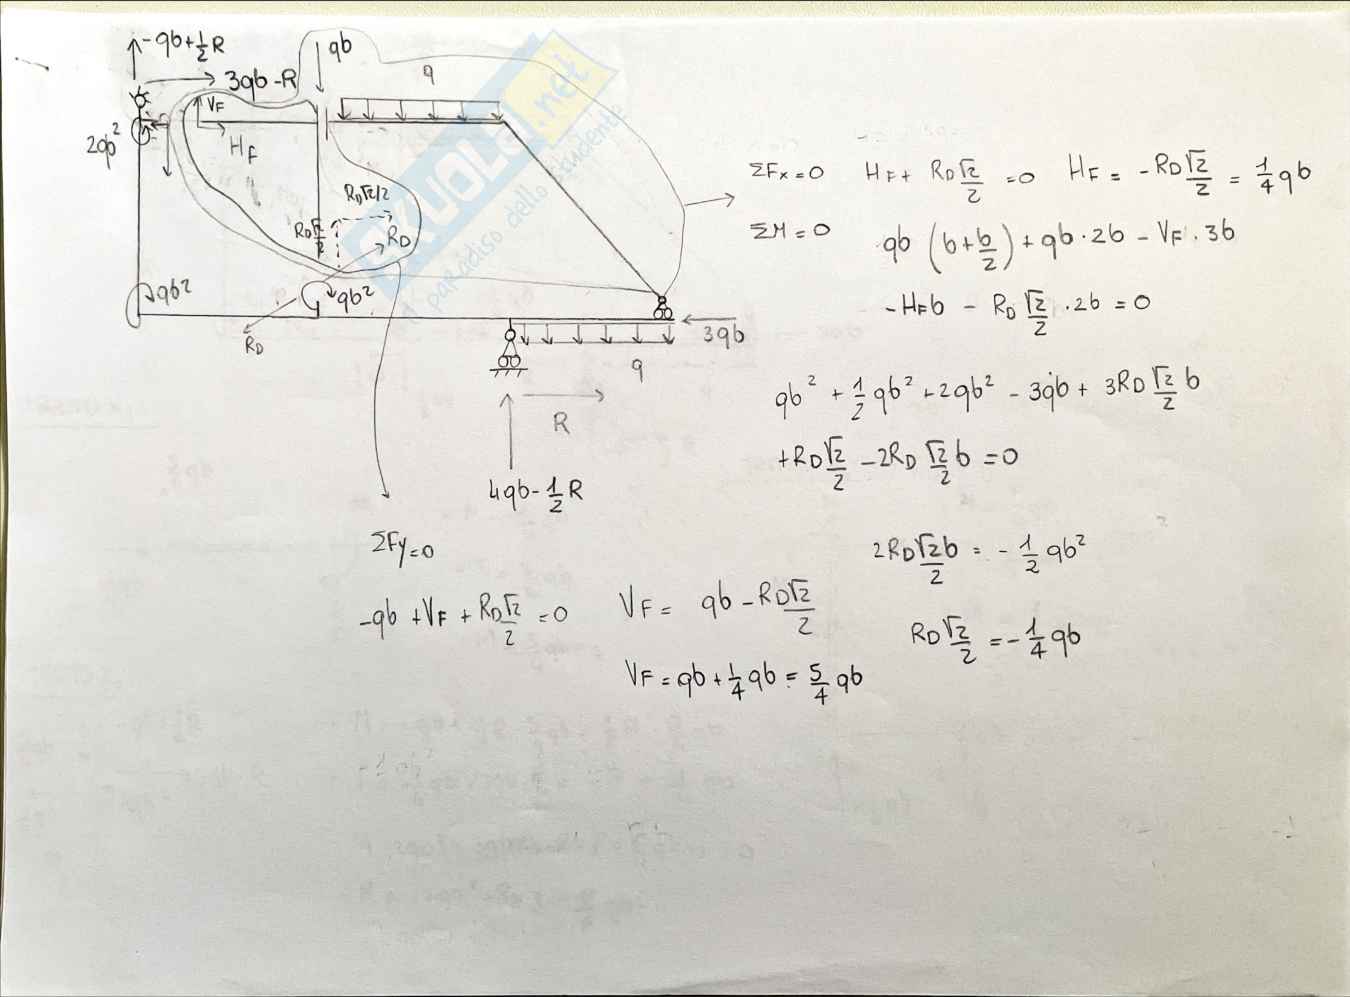 -qb+½R
qb
3qb-R
q
V_F
2qb²
H_F
R_D√2/2
R_D √2/2
R_D
qb²
qb²
R_D
3qb
q
R
4qb-½R
SKUOLA.net
il paradiso dello studente
ΣFx=0 H_F + R_D √2/2 =0 H_F = -R_D √2/2 = 1/4 qb
ΣM=0 qb (b+b/2) + qb·2b - V_F·3b
-H_F b - R_D √2/2 ·2b =0
qb² + 1/2 qb² +2qb² - 3qb + 3R_D √2/2 b
+R_D √2/2 -2R_D √2/2 b =0
2R_D √2/2 b = -1/2 qb²
R_D √2/2 = -1/4 qb
ΣFy=0
-qb +V_F + R_D √2/2 =0 V_F = qb - R_D √2/2
V_F = qb + 1/4 qb = 5/4 qb